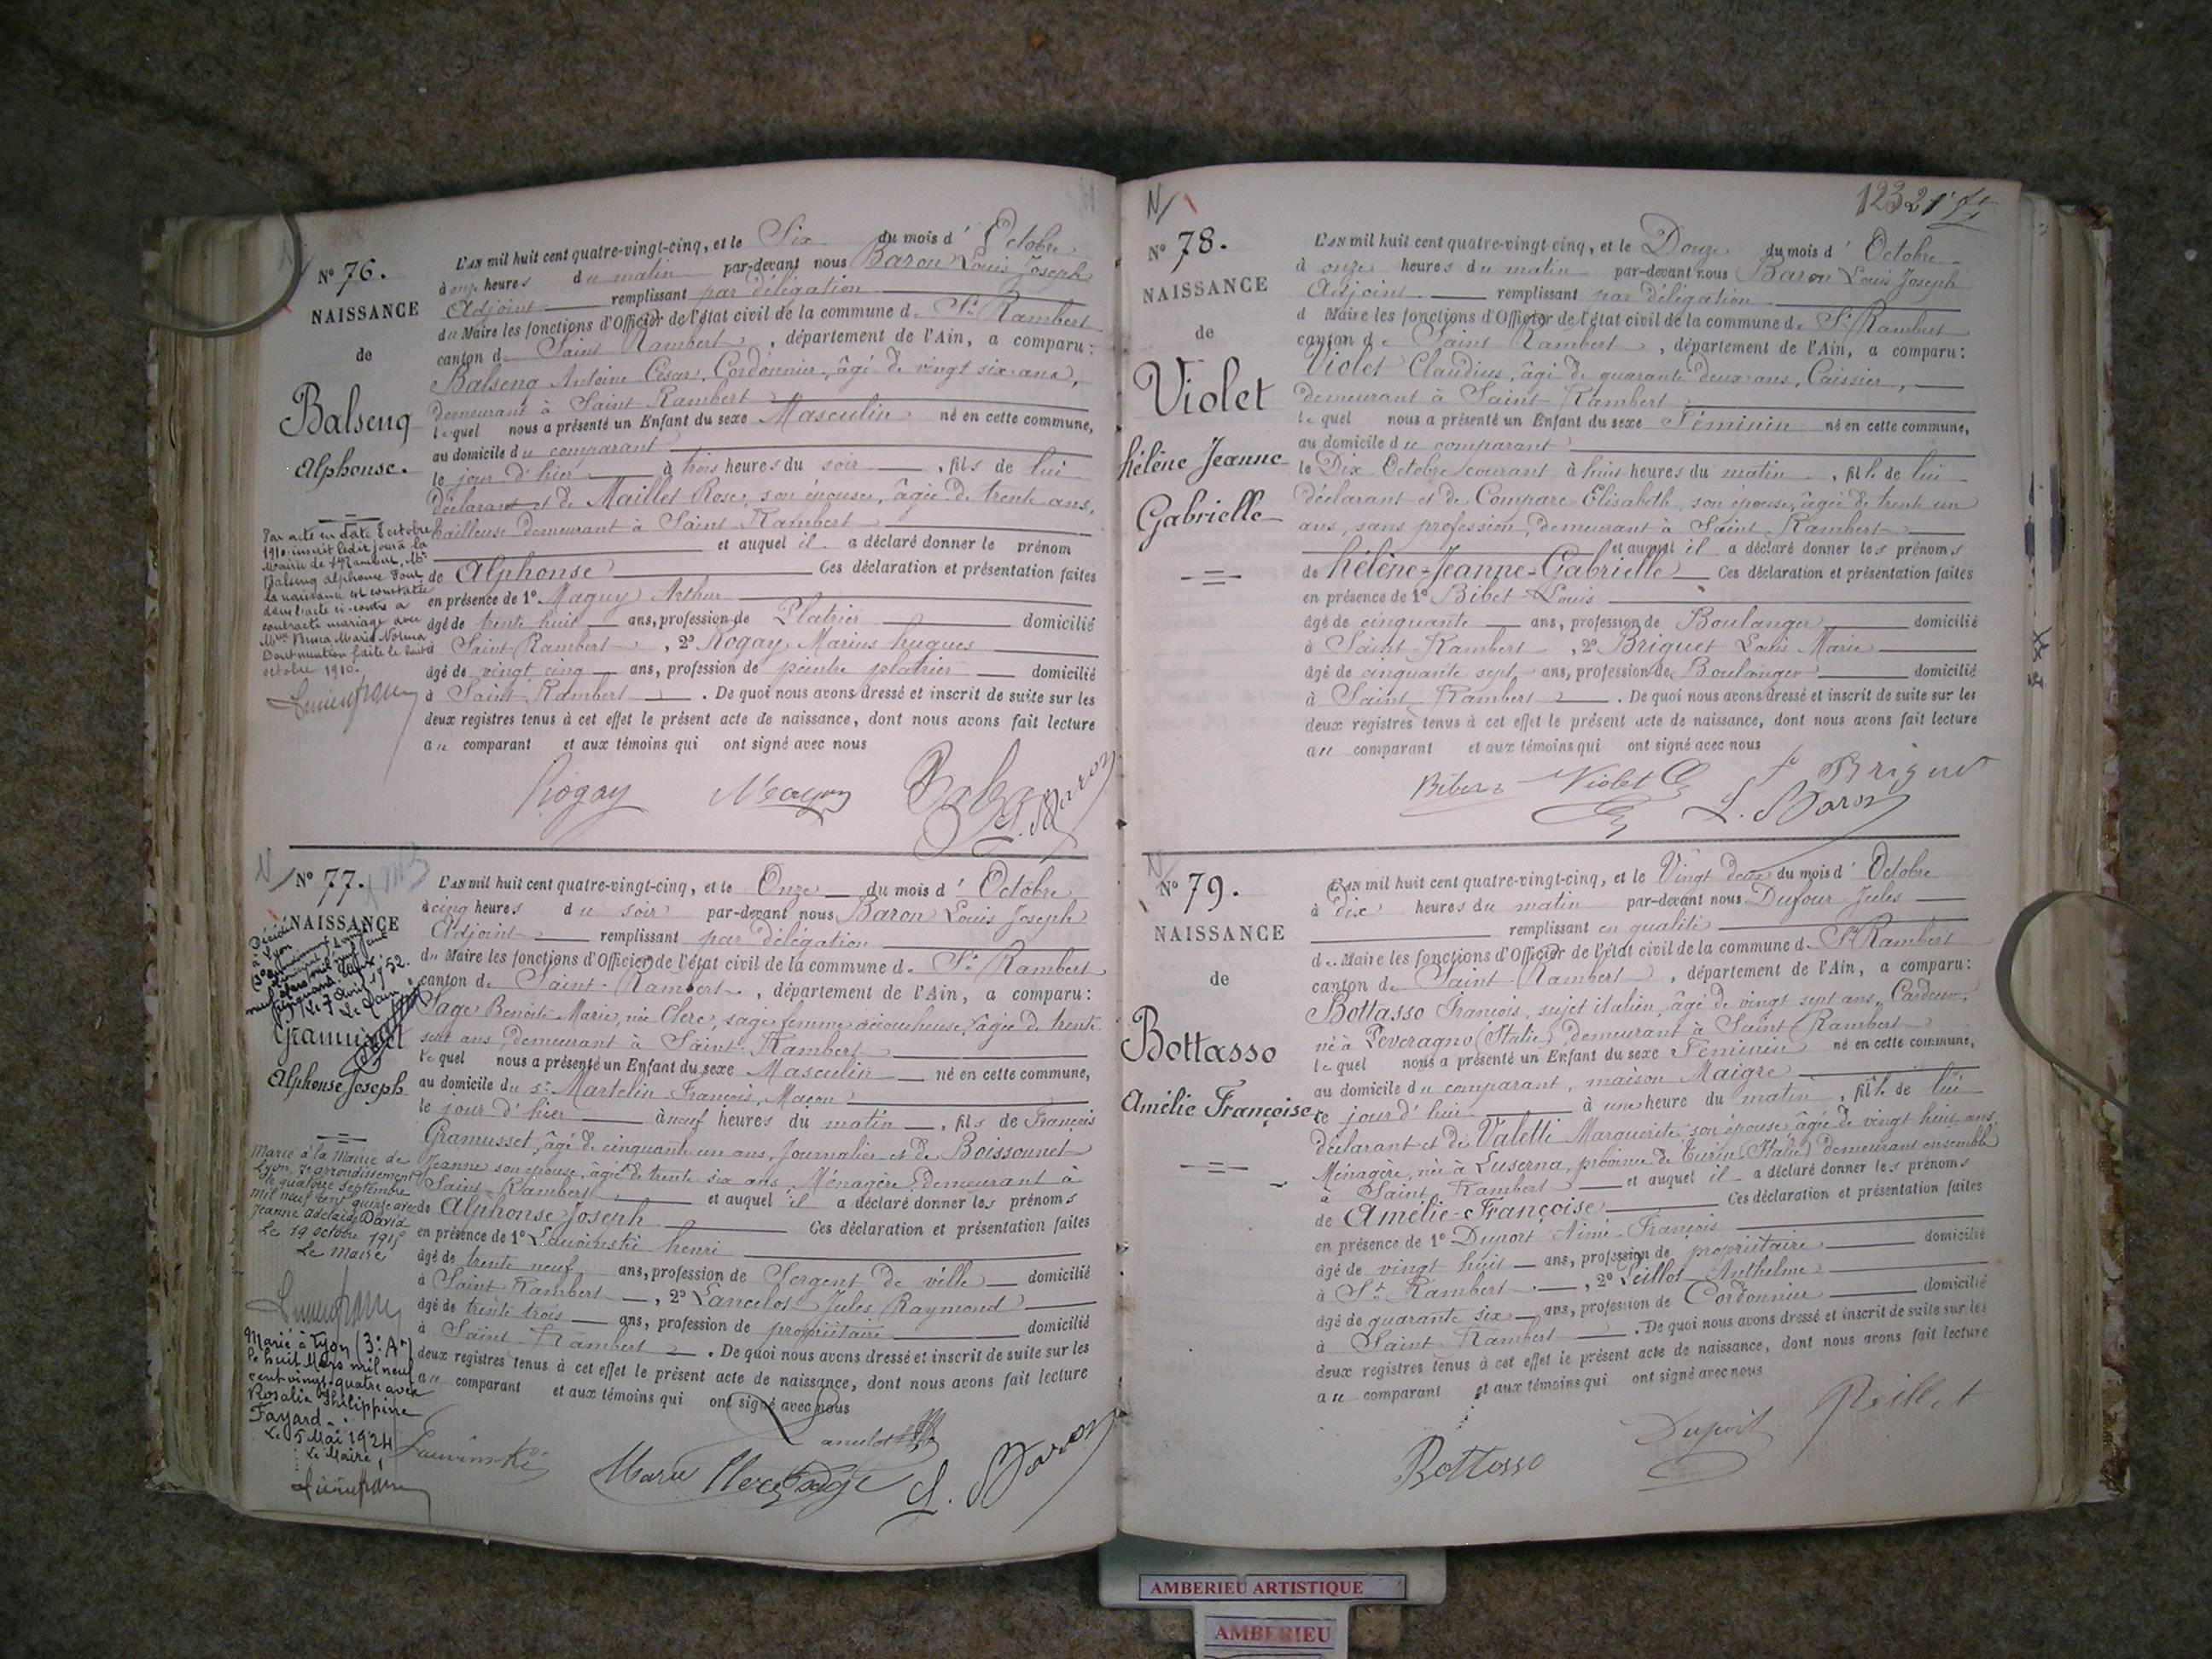 N° 76.
NAISSANCE
de
Balseng
Alphonse.
Par acte en date 8 octobre
1910 inscrit ledit jour à la
Mairie de St Rambert, Mr
Balseng Alphonse dont
la naissance est constatée
dans l'acte ci-contre a
contracté mariage avec
Dont mention faite le huit
octobre 1910.
L'AN mil huit cent quatre-vingt-cinq, et le Six du mois d' Octobre
à onze heures du matin par-devant nous Baron Louis Joseph
Adjoint remplissant par délégation
du Maire les fonctions d'Officier de l'état civil de la commune de St Rambert
canton de Saint Rambert, département de l'Ain, a comparu :
Balseng Antoine César, Cordonnier, âgé de vingt six ans,
demeurant à Saint Rambert
lequel nous a présenté un Enfant du sexe Masculin né en cette commune,
au domicile du comparant
le jour d'hier à trois heures du soir, fils de lui
déclarant et de Maillet Rose, son épouse, âgée de trente ans,
tailleuse demeurant à Saint Rambert
et auquel il a déclaré donner le prénom
de Alphonse Ces déclaration et présentation faites
en présence de 1° Maguy Arthur
âgé de trente huit ans, profession de Platrier domicilié
à Saint Rambert, 2° Rogay Marius hugues
âgé de vingt cinq ans, profession de peintre platrier domicilié
à Saint Rambert. De quoi nous avons dressé et inscrit de suite sur les
deux registres tenus à cet effet le présent acte de naissance, dont nous avons fait lecture
au comparant et aux témoins qui ont signé avec nous
Rogay
L. Baron
N° 77.
NAISSANCE
Gramusset
Alphonse Joseph
Marié à la Mairie de
Lyon, 7e arrondissement
le quatorze septembre
mil neuf cent quinze avec
Jeanne Adelaïde David
Le 19 octobre 1915
Le Maire
Marié à Lyon (3e Ar)
le huit Mars mil neuf
cent vingt-quatre avec
Rosalie Philippine
Fayard.
Le 5 Mai 1924
Le Maire,
L'AN mil huit cent quatre-vingt-cinq, et le Onze du mois d' Octobre
à cinq heures du soir par-devant nous Baron Louis Joseph
Adjoint remplissant par délégation
du Maire les fonctions d'Officier de l'état civil de la commune de St Rambert
canton de Saint-Rambert, département de l'Ain, a comparu :
Sage Benoîte Marie, née Clerc, sage femme accoucheuse, âgée de trente
sept ans, demeurant à Saint-Rambert
lequel nous a présenté un Enfant du sexe Masculin né en cette commune,
au domicile du sr Martelin François, Maçon
le jour d'hier à neuf heures du matin, fils de François
Gramusset, âgé de cinquante un ans, Journalier et de Boissonnet
Jeanne son épouse, âgée de trente six ans, Ménagère, demeurant à
Saint-Rambert et auquel il a déclaré donner les prénoms
de Alphonse Joseph Ces déclaration et présentation faites
en présence de 1° Lauvinski henri
âgé de trente neuf ans, profession de Sergent de ville domicilié
à Saint Rambert, 2° Lancelot Jules Raymond
âgé de trente trois ans, profession de propriétaire domicilié
à Saint-Rambert. De quoi nous avons dressé et inscrit de suite sur les
deux registres tenus à cet effet le présent acte de naissance, dont nous avons fait lecture
au comparant et aux témoins qui ont signé avec nous
Lancelot
Lauvinski
Marie Clerc Sage
L. Baron
123
N° 78.
NAISSANCE
de
Violet
hélène Jeanne
Gabrielle
L'AN mil huit cent quatre-vingt-cinq, et le Douze du mois d' Octobre
à onze heures du matin par-devant nous Baron Louis Joseph
Adjoint remplissant par délégation
d Maire les fonctions d'Officier de l'état civil de la commune de St Rambert
canton de Saint Rambert, département de l'Ain, a comparu :
Violet Claudius, âgé de quarante deux ans, Caissier,
demeurant à Saint Rambert
lequel nous a présenté un Enfant du sexe Féminin né en cette commune,
au domicile du comparant
le Dix Octobre courant à huit heures du matin, fille de lui
déclarant et de Compare Elisabeth, son épouse, âgée de trente un
ans, sans profession, demeurant à Saint-Rambert
et auquel il a déclaré donner les prénoms
de hélène-Jeanne-Gabrielle Ces déclaration et présentation faites
en présence de 1° Bibet Louis
âgé de cinquante ans, profession de Boulanger domicilié
à Saint Rambert, 2° Briguet Louis Marie
âgé de cinquante sept ans, profession de Boulanger domicilié
à Saint Rambert. De quoi nous avons dressé et inscrit de suite sur les
deux registres tenus à cet effet le présent acte de naissance, dont nous avons fait lecture
au comparant et aux témoins qui ont signé avec nous
Violet
L. Baron
N° 79.
NAISSANCE
de
Bottasso
Amélie Françoise
L'AN mil huit cent quatre-vingt-cinq, et le Vingt deux du mois d' Octobre
à dix heures du matin par-devant nous Dufour Jules
remplissant en qualité
de Maire les fonctions d'Officier de l'état civil de la commune de St Rambert
canton de Saint-Rambert, département de l'Ain, a comparu :
Bottasso François, sujet italien, âgé de vingt sept ans, Cardeur,
né à Peveragno (Italie), demeurant à Saint Rambert
lequel nous a présenté un Enfant du sexe Féminin né en cette commune,
au domicile du comparant, maison Maigre
le jour d'hui à une heure du matin, fille de lui
déclarant et de Valetti Marguerite son épouse âgée de vingt huit ans,
Ménagère, née à Luserna, province de Turin (Italie) demeurant ensemble
à Saint Rambert et auquel il a déclaré donner les prénoms
de Amélie-Françoise Ces déclaration et présentation faites
en présence de 1° Duport Aimé François
âgé de vingt huit ans, profession de propriétaire domicilié
à St Rambert, 2° Reillet Anthelme
âgé de quarante six ans, profession de Cordonnier domicilié
à Saint Rambert. De quoi nous avons dressé et inscrit de suite sur les
deux registres tenus à cet effet le présent acte de naissance, dont nous avons fait lecture
au comparant et aux témoins qui ont signé avec nous
Reillet
Duport
Bottasso
AMBERIEU ARTISTIQUE
AMBERIEU